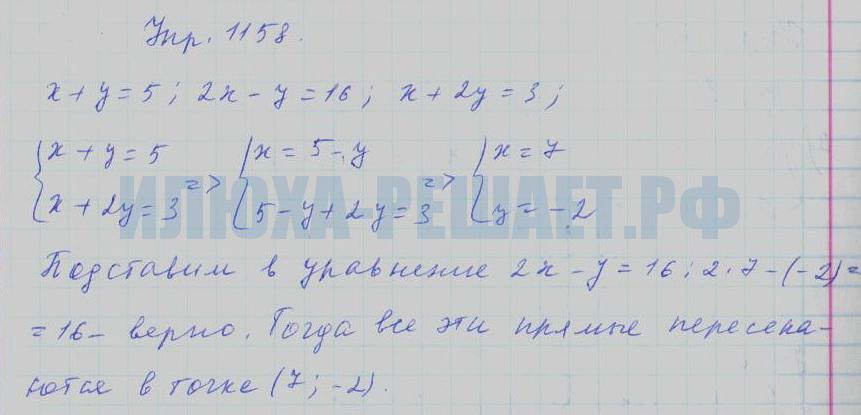 Упр. 1158.
x + y = 5; 2x - y = 16; x + 2y = 3;
{x + y = 5 {x = 5 - y {x = 7
{x + 2y = 3 => {5 - y + 2y = 3 => {y = -2
ИЛЮХА-РЕШАЕТ.РФ
Подставим в уравнение 2x - y = 16; 2·7 - (-2) =
= 16 - верно. Тогда все эти прямые пересека-
ются в точке (7; -2).